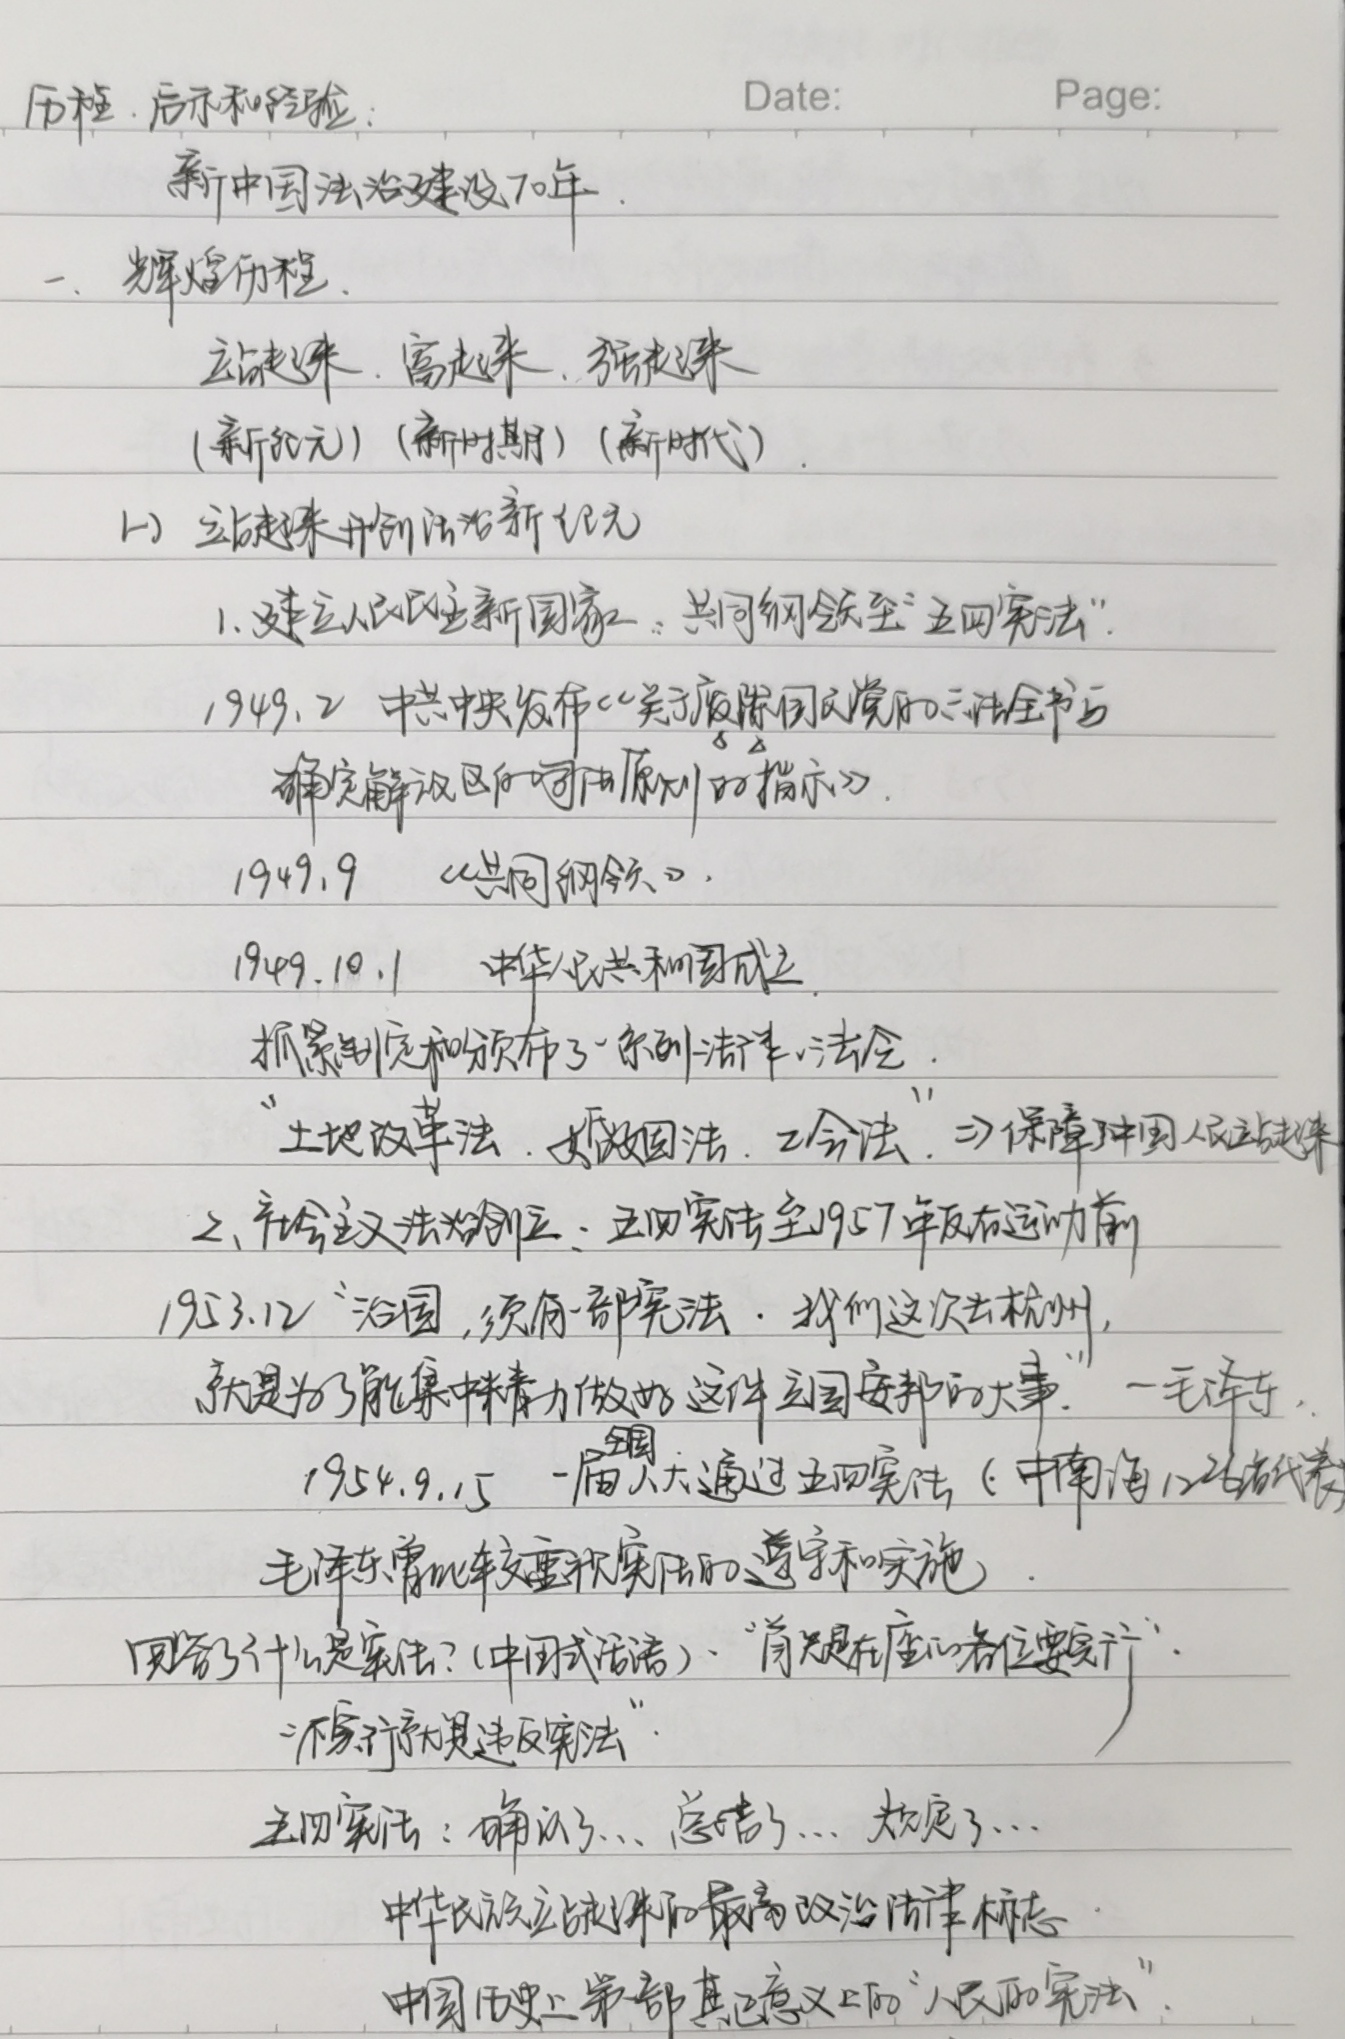 Date: Page:
历程、启示和经验:
新中国法治建设70年.
一、辉煌历程.
站起来、富起来、强起来
(新纪元)(新时期)(新时代).
(一) 站起来开创法治新纪元
1、建立人民民主新国家:共同纲领至“五四宪法”.
1949.2 中共中央发布《关于废除国民党的六法全书与
确定解放区的司法原则的指示》.
1949.9 《共同纲领》.
1949.10.1 中华人民共和国成立.
抓紧制定和颁布了一系列法律、法令.
“土地改革法、婚姻法、工会法”.⇒保障了中国人民站起来
2、社会主义法治创立:五四宪法至1957年反右运动前
1953.12“治国,须有一部宪法.我们这次去杭州,
就是为了能集中精力做好这件立国安邦的大事.”—毛泽东.
1954.9.15 一届全国人大通过五四宪法(中南海1226名代表)
毛泽东曾比较重视宪法的遵守和实施.
回答了什么是宪法?(中国式话语).“首先是在座的各位要实行”.
“不实行就是违反宪法”.
五四宪法:确认了... 总结了... 规定了...
中华民族站起来的最高政治法律标志.
中国历史上第一部真正意义上的“人民的宪法”.